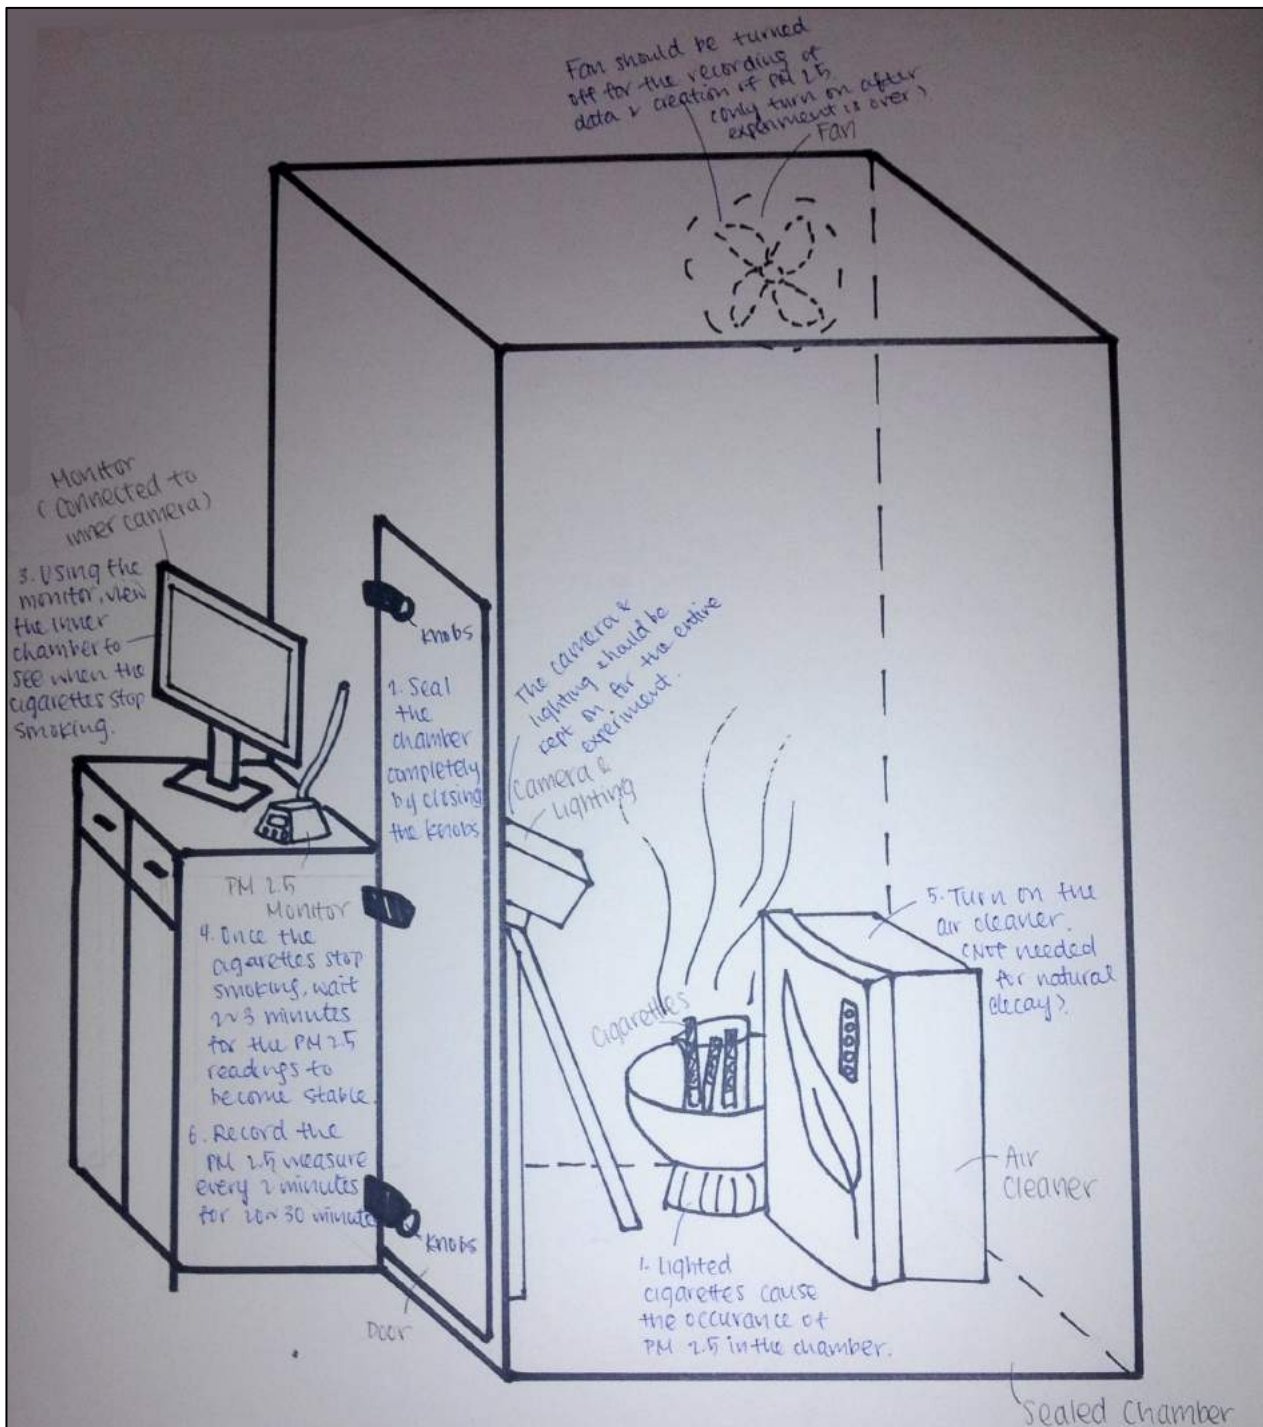 Fan should be turned
off for the recording of
data & creation of PM 2.5
(only turn on after
experiment is over)
Fan
Monitor
(connected to
inner camera)
3. Using the
monitor, view
the inner
chamber to
see when the
cigarettes stop
smoking.
Knobs
2. Seal
the
chamber
completely
by closing
the knobs
The camera &
lighting should be
kept on for the entire
experiment.
Camera &
Lighting
PM 2.5
Monitor
4. Once the
cigarettes stop
smoking, wait
2~3 minutes
for the PM 2.5
readings to
become stable.
6. Record the
PM 2.5 measure
every 2 minutes
for 20~30 minute
Knobs
Door
Cigarettes
5. Turn on the
air cleaner.
(Not needed
for natural
decay)
Air
Cleaner
1. Lighted
cigarettes cause
the occurance of
PM 2.5 in the chamber.
Sealed Chamber